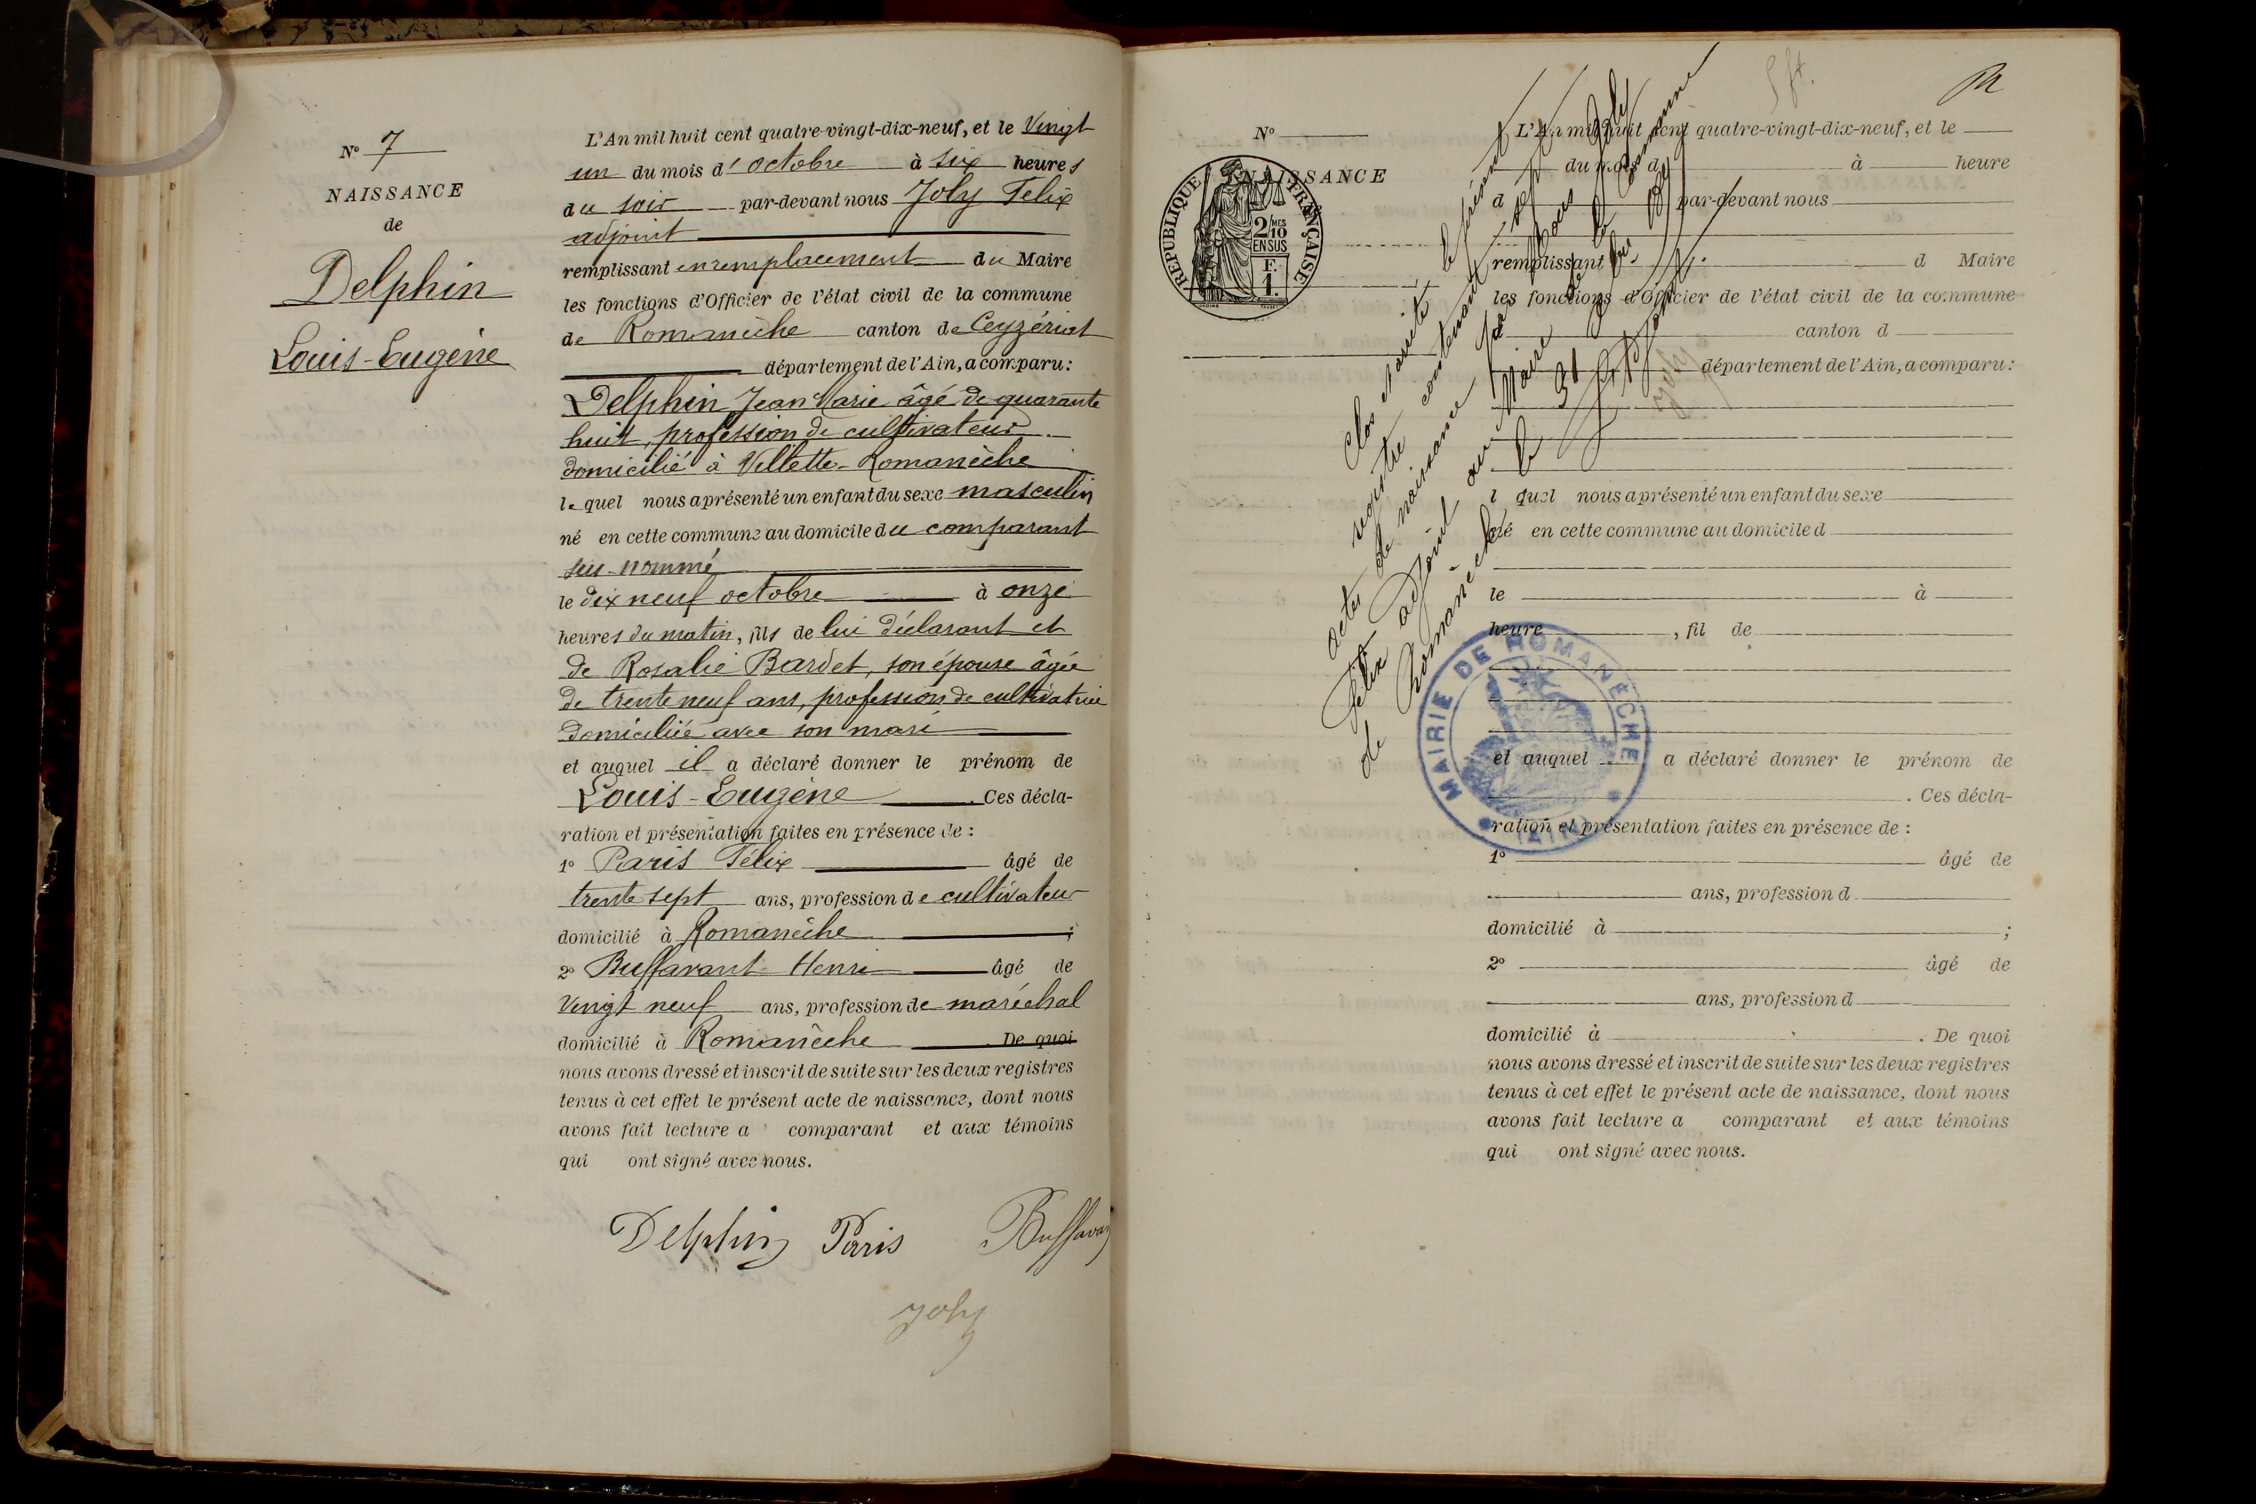 N° 7
NAISSANCE
de
Delphin
Louis-Eugène
L'An mil huit cent quatre-vingt-dix-neuf, et le Vingt
un du mois d'octobre à six heures
du soir par-devant nous Joly Felix
adjoint
remplissant en remplacement du Maire
les fonctions d'Officier de l'état civil de la commune
de Romanèche canton de Ceyzériat
département de l'Ain, a comparu:
Delphin Jean Marie âgé de quarante
huit, profession de cultivateur
domicilié à Villette-Romanèche
lequel nous a présenté un enfant du sexe masculin
né en cette commune au domicile du comparant
sus-nommé
le dix neuf octobre à onze
heures du matin, fils de lui déclarant et
de Rosalie Bardet, son épouse âgée
de trente neuf ans, profession de cultivatrice
domiciliée avec son mari
et auquel il a déclaré donner le prénom de
Louis-Eugène. Ces décla-
ration et présentation faites en présence de :
1° Paris Félix âgé de
trente sept ans, profession de cultivateur
domicilié à Romanèche ;
2° Buffavant Henri âgé de
Vingt neuf ans, profession de maréchal
domicilié à Romanèche De quoi
nous avons dressé et inscrit de suite sur les deux registres
tenus à cet effet le présent acte de naissance, dont nous
avons fait lecture a comparant et aux témoins
qui ont signé avec nous.
Delphin Paris Buffavan
Joly
N°
NAISSANCE
RÉPUBLIQUE FRANÇAISE
2/10 MES
EN SUS
F.
1.
L'An mil huit cent quatre-vingt-dix-neuf, et le
du mois d à heure
d par-devant nous
remplissant d Maire
les fonctions d'Officier de l'état civil de la commune
d canton d
département de l'Ain, a comparu:
l quel nous a présenté un enfant du sexe
né en cette commune au domicile d
le à
heure , fil de
et auquel a déclaré donner le prénom de
. Ces décla-
ration et présentation faites en présence de :
1° âgé de
ans, profession d
domicilié à ;
2° âgé de
ans, profession d
domicilié à . De quoi
nous avons dressé et inscrit de suite sur les deux registres
tenus à cet effet le présent acte de naissance, dont nous
avons fait lecture a comparant et aux témoins
qui ont signé avec nous.
Clos et arrêté le présent
registre contenant sept
actes de naissance par nous Joly
Félix adjoint au Maire de la commune
de Romanèche le 31
Joly
MAIRIE DE ROMANÈCHE
(AIN)